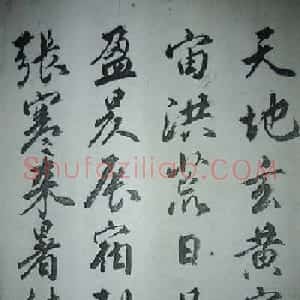 天地玄黄宇
宙洪荒日月
盈昃辰宿列
張寒来暑往
Shufaziliao.COM